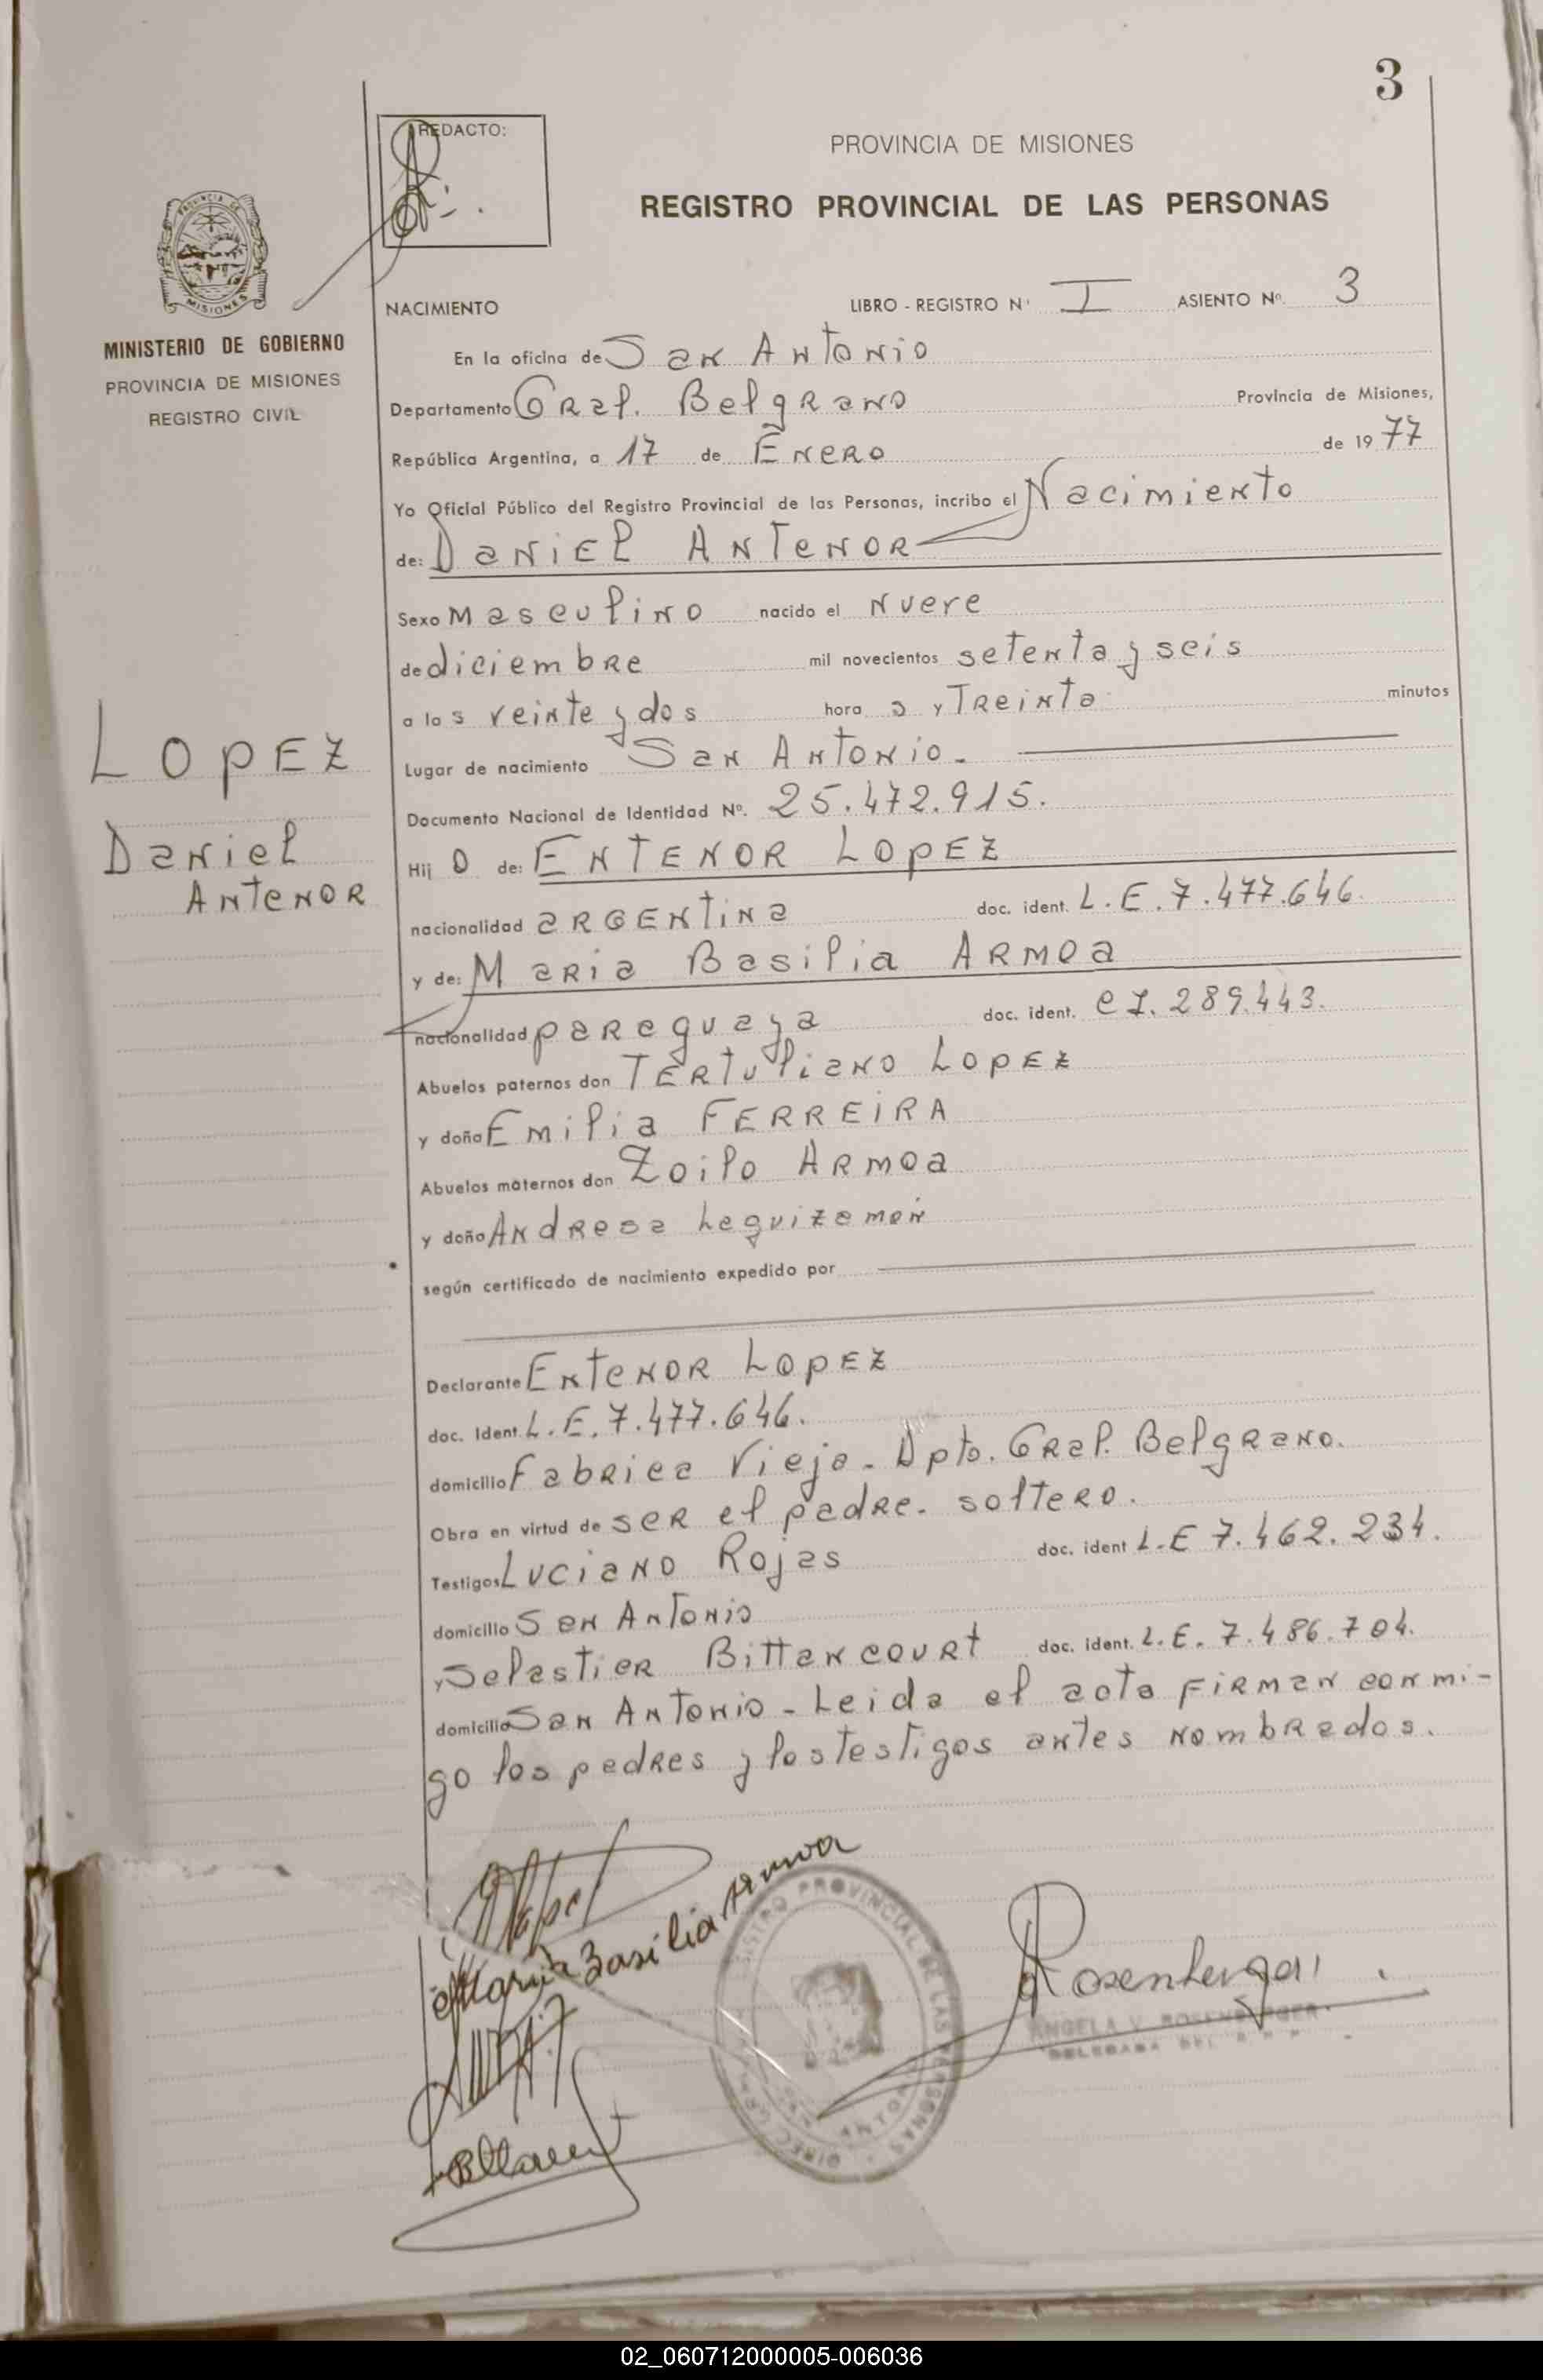 3
REDACTO:
PROVINCIA DE MISIONES
REGISTRO PROVINCIAL DE LAS PERSONAS
MISIONES
MINISTERIO DE GOBIERNO
PROVINCIA DE MISIONES
REGISTRO CIVIL
NACIMIENTO LIBRO - REGISTRO Nº I ASIENTO Nº 3
En la oficina de San Antonio
Departamento Gral. Belgrano Provincia de Misiones,
República Argentina, a 17 de Enero de 1977
Yo Oficial Público del Registro Provincial de las Personas, incribo el Nacimiento
de: Daniel Antenor
Sexo masculino nacido el nueve
de diciembre mil novecientos setenta y seis
a las veinte y dos hora s y Treinta minutos
LOPEZ
Daniel
Antenor
Lugar de nacimiento San Antonio.-
Documento Nacional de Identidad Nº. 25.472.915.
Hijo de: ENTENOR LOPEZ
nacionalidad argentina doc. ident. L.E. 7.477.646.
y de: Maria Basilia ARMOA
nacionalidad paraguaya doc. ident. CI. 289.443.
Abuelos paternos don Tertuliano LOPEZ
y doña Emilia FERREIRA
Abuelos maternos don Zoilo ARMOA
y doña Andresa Leguizamón
según certificado de nacimiento expedido por
Declarante Entenor LOPEZ
doc. Ident. L.E. 7.477.646.
domicilio Fabrica Vieja - Dpto. Gral. Belgrano.
Obra en virtud de ser el padre. soltero.
Testigos Luciano Rojas doc. ident L.E 7.462.234.
domicilio San Antonio
y Selastier Bittancourt doc. ident. L.E. 7.486.704.
domicilio San Antonio - Leida el acta firman conmi-
go los padres y los testigos antes nombrados.
Maria Basilia Armoa
REGISTRO PROVINCIAL DE LAS PERSONAS
SAN ANTONIO
Rosenberger
ANGELA V. ROSENBERGER
DELEGADA DEL R. P. P.
02_060712000005-006036